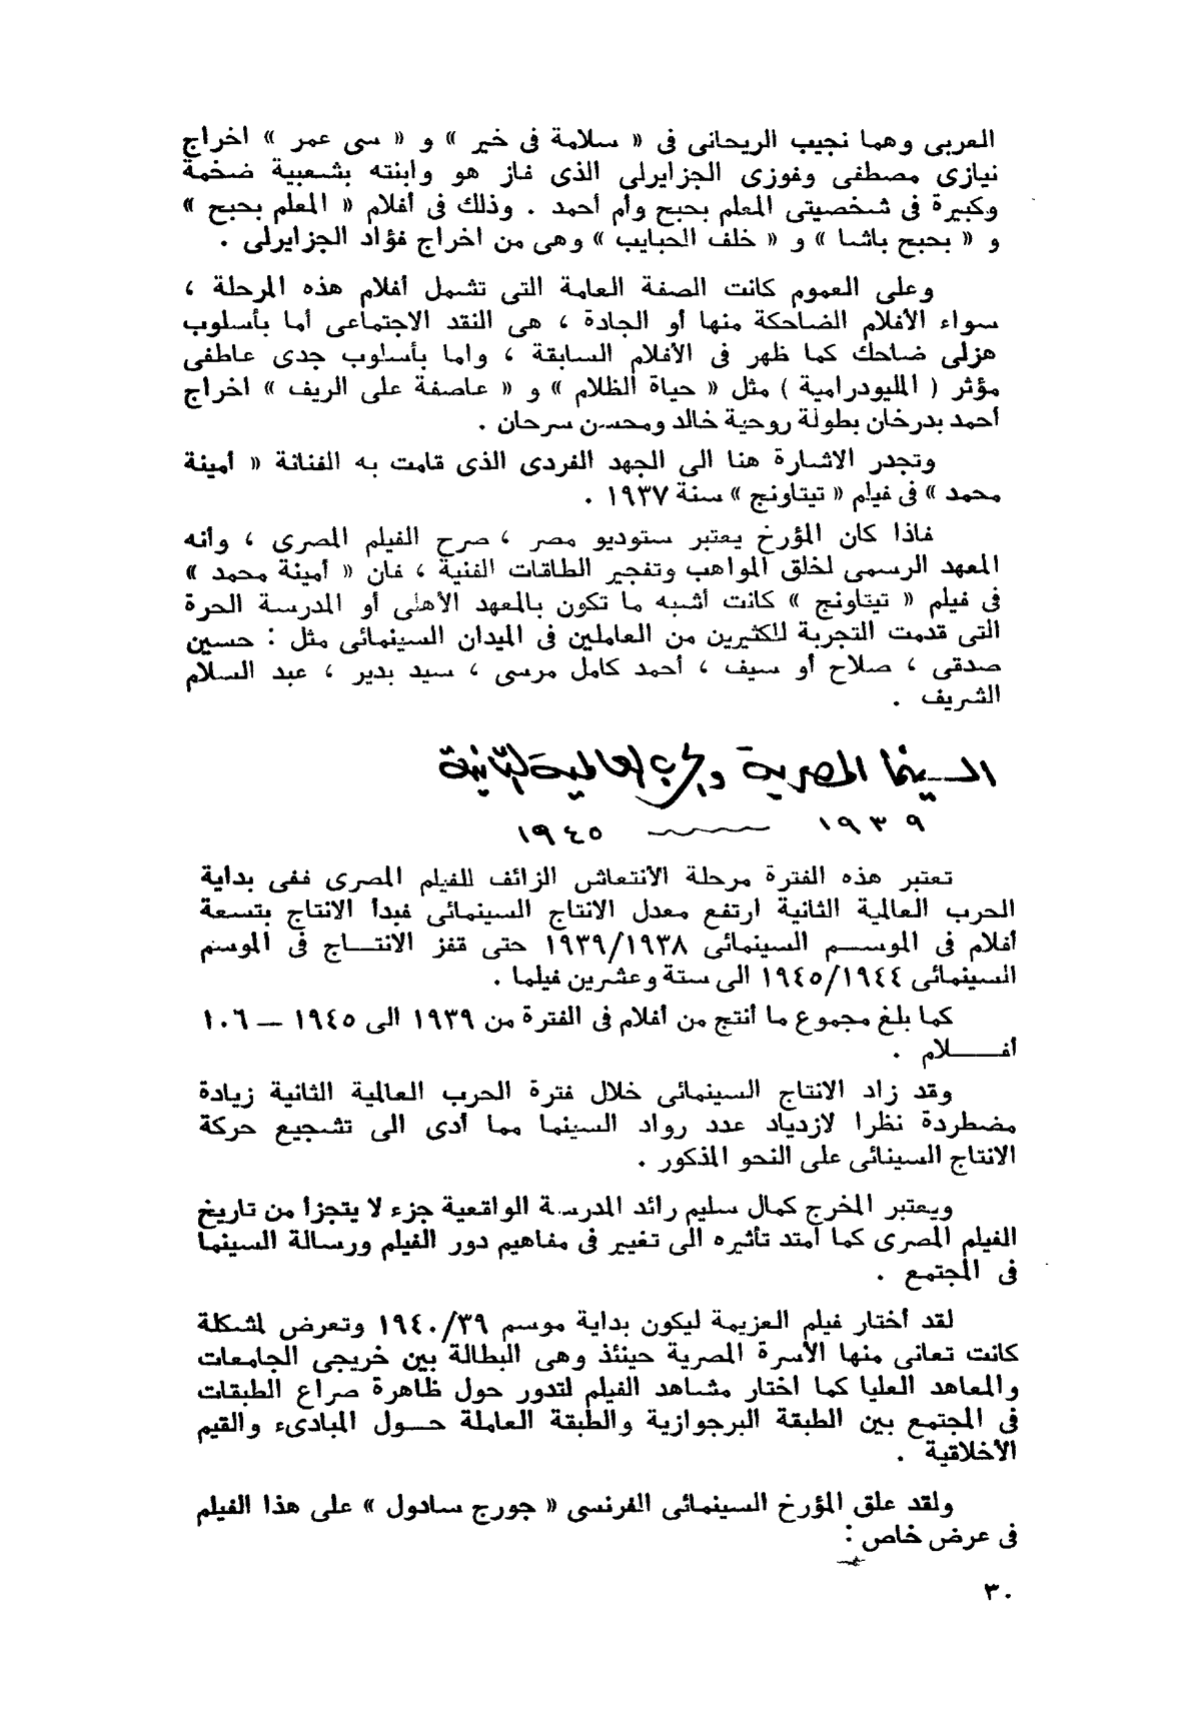 العربى وهما نجيب الريحانى فى « سلامة فى خير » و « سى عمر » اخراج
نيازى مصطفى وفوزى الجزايرلى الذى فاز هو وابنته بشعبية ضخمة
وكبيرة فى شخصيتى المعلم بحبح وأم أحمد . وذلك فى أفلام « المعلم بحبح »
و « بحبح باشا » و « خلف الحبايب » وهى من اخراج فؤاد الجزايرلى .
وعلى العموم كانت الصفة العامة التى تشمل أفلام هذه المرحلة ،
سواء الأفلام الضاحكة منها أو الجادة ، هى النقد الاجتماعى أما بأسلوب
هزلى ضاحك كما ظهر فى الأفلام السابقة ، واما بأسلوب جدى عاطفى
مؤثر ( المليودرامية ) مثل « حياة الظلام » و « عاصفة على الريف » اخراج
أحمد بدرخان بطولة روحية خالد ومحسن سرحان .
وتجدر الاشارة هنا الى الجهد الفردى الذى قامت به الفنانة « أمينة
محمد » فى فيلم « تيتاونج » سنة ١٩٣٧ .
فاذا كان المؤرخ يعتبر ستوديو مصر ، صرح الفيلم المصرى ، وأنه
المعهد الرسمى لخلق المواهب وتفجير الطاقات الفنية ، فان « أمينة محمد »
فى فيلم « تيتاونج » كانت أشبه ما تكون بالمعهد الأهلى أو المدرسة الحرة
التى قدمت التجربة للكثيرين من العاملين فى الميدان السينمائى مثل : حسين
صدقى ، صلاح أو سيف ، أحمد كامل مرسى ، سيد بدير ، عبد السلام
الشريف .
السينما المصرية والحرب العالمية الثانية
١٩٣٩ ــــ ١٩٤٥
تعتبر هذه الفترة مرحلة الأنتعاش الزائف للفيلم المصرى ففى بداية
الحرب العالمية الثانية ارتفع معدل الانتاج السينمائى فبدأ الانتاج بتسعة
أفلام فى الموســـم السينمائى ١٩٣٩/١٩٣٨ حتى قفز الانتـــاج فى الموسم
السينمائى ١٩٤٥/١٩٤٤ الى ستة وعشرين فيلما .
كما بلغ مجموع ما أنتج من أفلام فى الفترة من ١٩٣٩ الى ١٩٤٥ — ١٠٦
أفـــــلام .
وقد زاد الانتاج السينمائى خلال فترة الحرب العالمية الثانية زيادة
مضطردة نظرا لازدياد عدد رواد السينما مما أدى الى تشجيع حركة
الانتاج السينائى على النحو المذكور .
ويعتبر المخرج كمال سليم رائد المدرسة الواقعية جزء لا يتجزأ من تاريخ
الفيلم المصرى كما امتد تأثيره الى تغيير فى مفاهيم دور الفيلم ورسالة السينما
فى المجتمع .
لقد أختار فيلم العزيمة ليكون بداية موسم ١٩٤٠/٣٩ وتعرض لمشكلة
كانت تعانى منها الأسرة المصرية حينئذ وهى البطالة بين خريجى الجامعات
والمعاهد العليا كما اختار مشاهد الفيلم لتدور حول ظاهرة صراع الطبقات
فى المجتمع بين الطبقة البرجوازية والطبقة العاملة حـــول المبادىء والقيم
الأخلاقية .
ولقد علق المؤرخ السينمائى الفرنسى « جورج سادول » على هذا الفيلم
فى عرض خاص :
٣٠